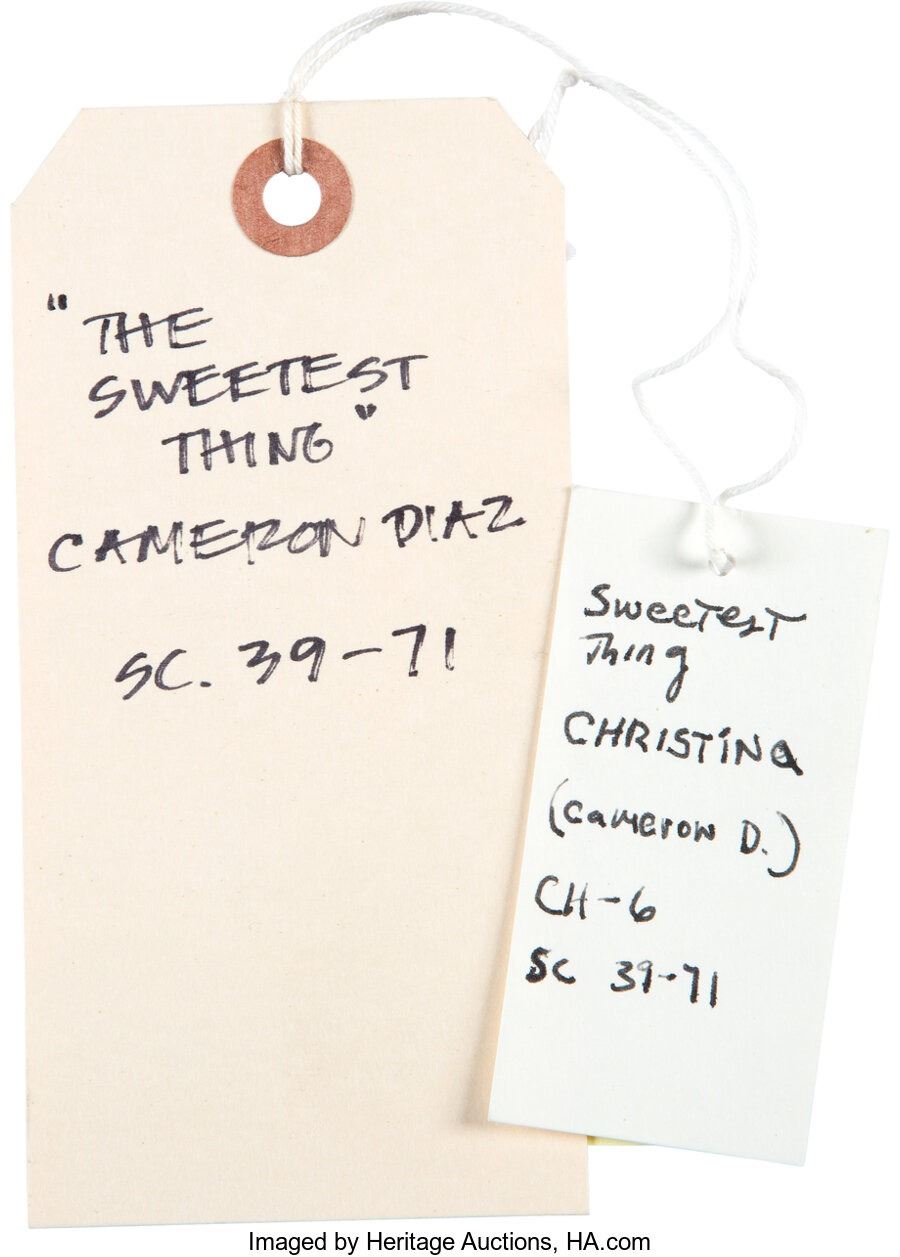 "THE
SWEETEST
THING"
CAMERON DIAZ
SC. 39-71
Sweetest
Thing
CHRISTINa
(Cameron D.)
CH-6
SC 39-71
Imaged by Heritage Auctions, HA.com